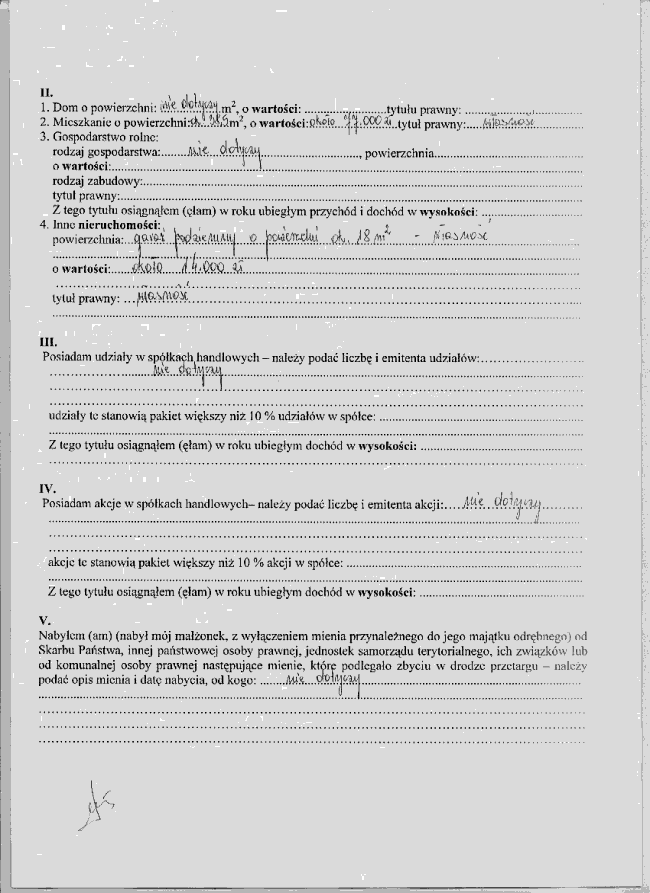 II.
1. Dom o powierzchni: nie dotyczy m², o wartości: ........................tytułu prawny: ......................
2. Mieszkanie o powierzchni: ok. m², o wartości: około 77.000 zł tytuł prawny: własność
3. Gospodarstwo rolne:
rodzaj gospodarstwa: nie dotyczy, powierzchnia
o wartości:
rodzaj zabudowy:
tytuł prawny:
Z tego tytułu osiągnąłem (ęłam) w roku ubiegłym przychód i dochód w wysokości:
4. Inne nieruchomości:
powierzchnia: garaż podziemny o powierzchni ok. 18 m² - własność
o wartości: około 14.000 zł
tytuł prawny: własność
III.
Posiadam udziały w spółkach handlowych – należy podać liczbę i emitenta udziałów:
nie dotyczy
udziały te stanowią pakiet większy niż 10 % udziałów w spółce:
Z tego tytułu osiągnąłem (ęłam) w roku ubiegłym dochód w wysokości:
IV.
Posiadam akcje w spółkach handlowych– należy podać liczbę i emitenta akcji: nie dotyczy
akcje te stanowią pakiet większy niż 10 % akcji w spółce:
Z tego tytułu osiągnąłem (ęłam) w roku ubiegłym dochód w wysokości:
V.
Nabyłem (am) (nabył mój małżonek, z wyłączeniem mienia przynależnego do jego majątku odrębnego) od
Skarbu Państwa, innej państwowej osoby prawnej, jednostek samorządu terytorialnego, ich związków lub
od komunalnej osoby prawnej następujące mienie, które podlegało zbyciu w drodze przetargu – należy
podać opis mienia i datę nabycia, od kogo: nie dotyczy